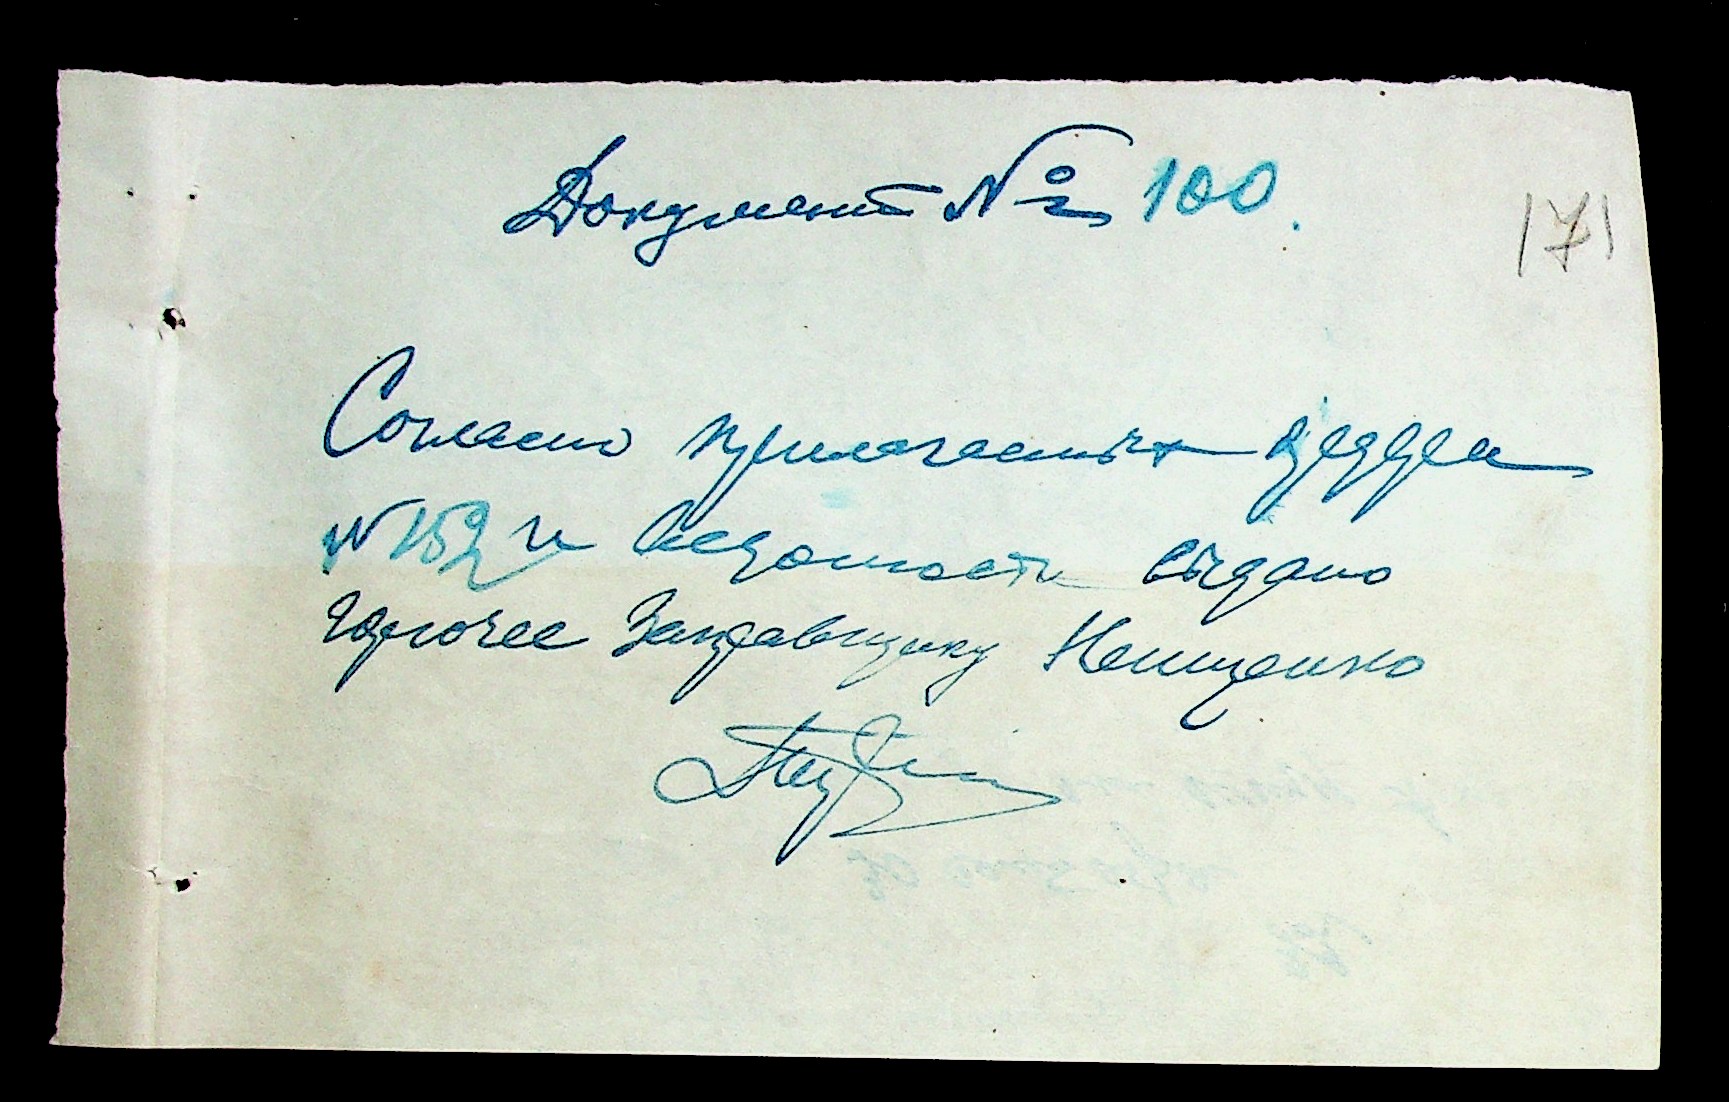 Документ № 100.
171
Согласно прилагаемых
№ 152 и Ведомости выдано
горючее Заправщику Нещценко